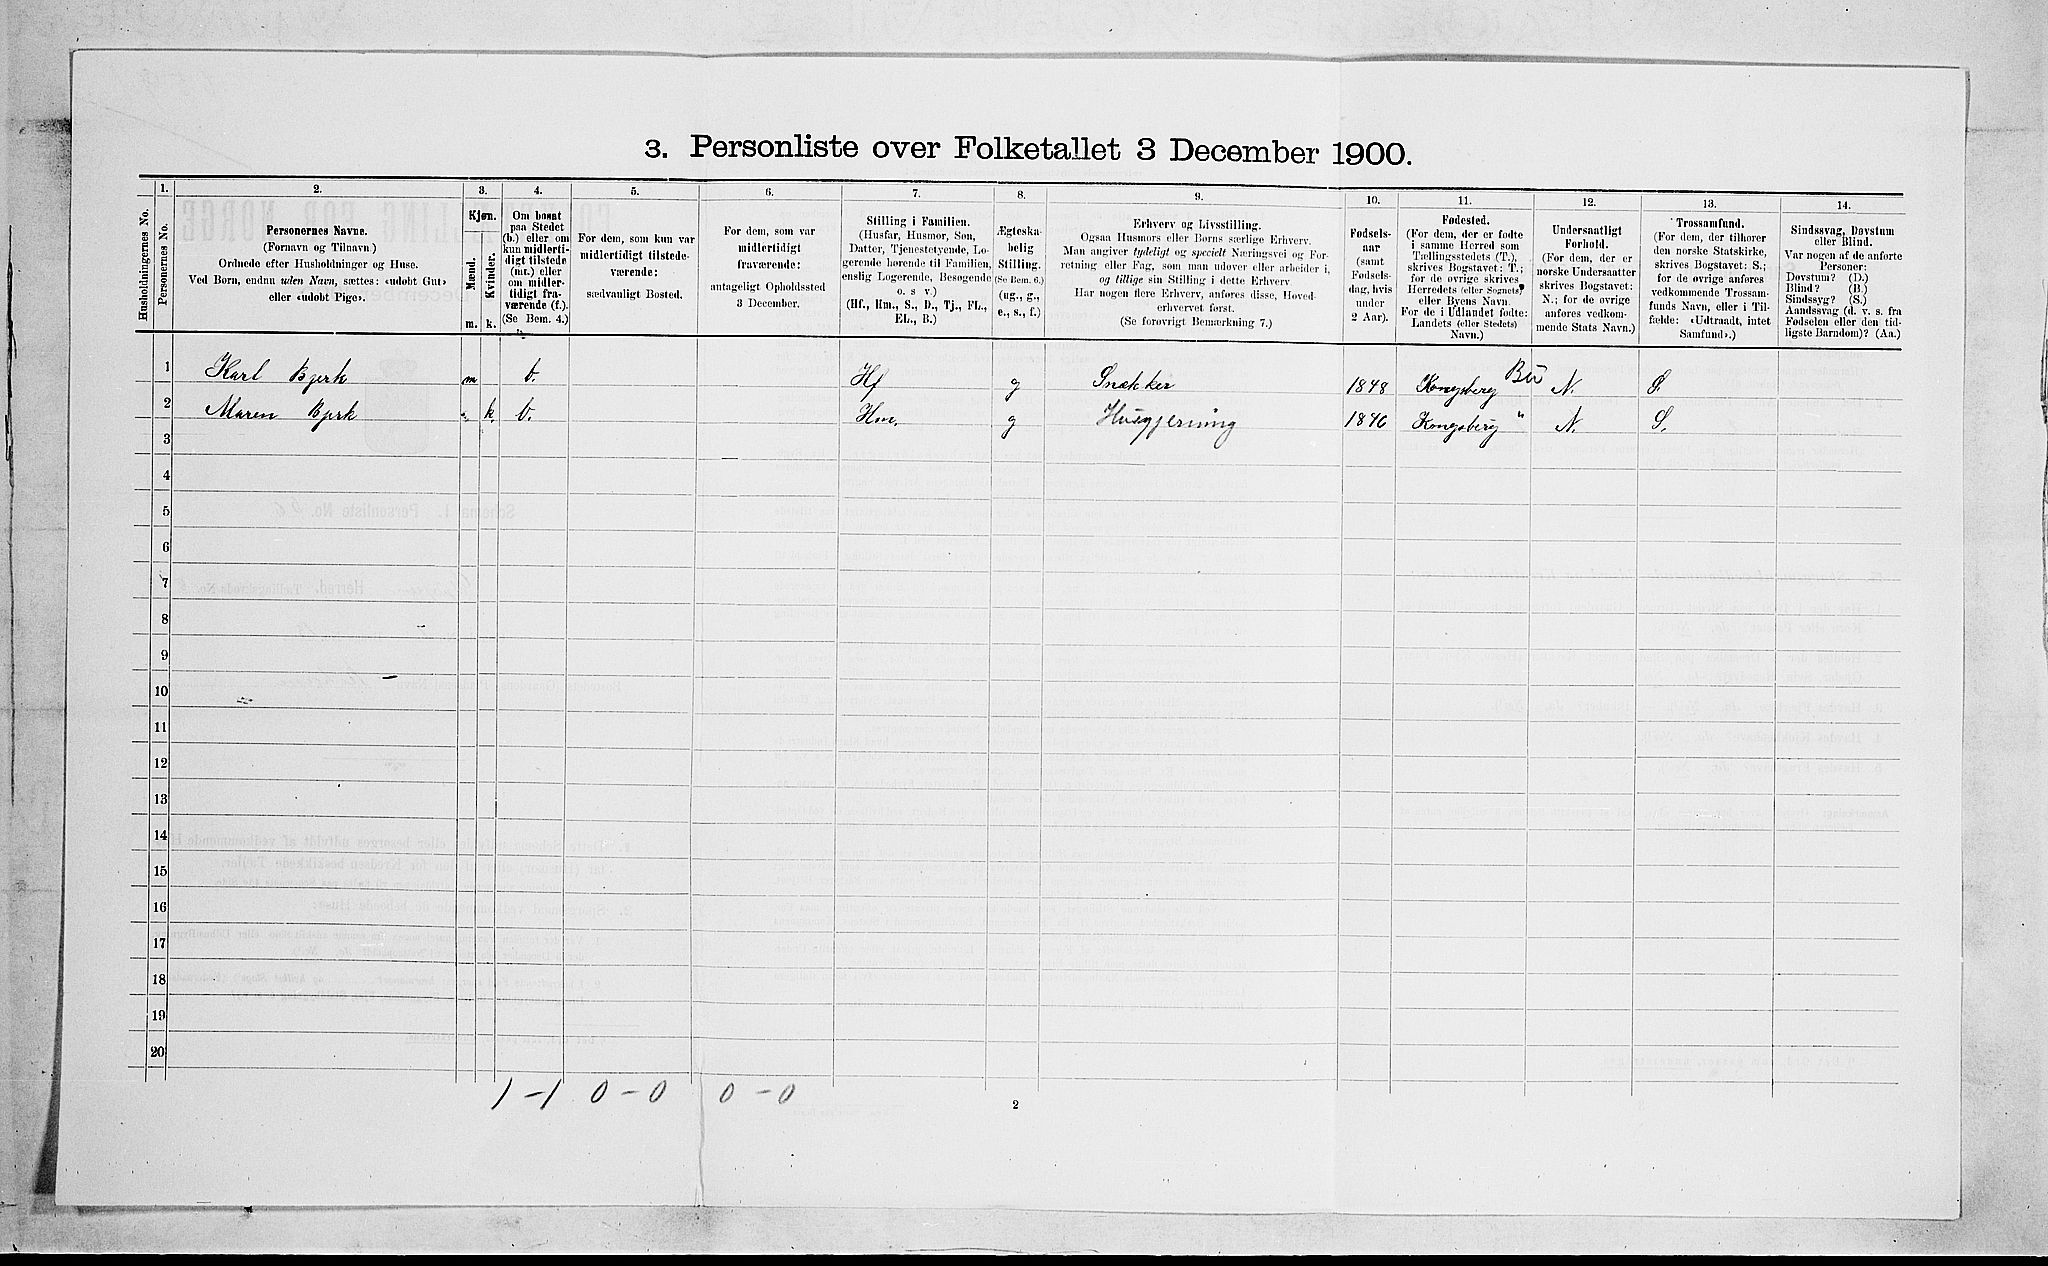 3. Personliste over Folketallet 3 December 1900.
1. 2. 3. 4. 5. 6. 7. 8. 9. 10. 11. 12. 13. 14.
Husholdningernes No.
Personernes No.
Personernes Navne.
(Fornavn og Tilnavn)
Ordnede efter Husholdninger og Huse.
Ved Børn, endnu uden Navn, sættes: «udøbt Gut»
eller «udøbt Pige».
Kjøn.
Mænd.
Kvinder.
m. k.
Om bosat
paa Stedet
(b.) eller om
kun midlerti-
digt tilstede
(mt.) eller
om midler-
tidigt fra-
værende (f.).
(Se Bem. 4.)
For dem, som kun var
midlertidigt tilstede-
værende:
sædvanligt Bosted.
For dem, som var
midlertidigt
fraværende:
antageligt Opholdssted
3 December.
Stilling i Familien.
(Husfar, Husmor, Søn,
Datter, Tjenestetyende, Lo-
gerende hørende til Familien,
enslig Logerende, Besøgende
o. s v.)
(Hf., Hm., S., D., Tj., FL.,
EL., B.)
Ægteska-
belig
Stilling.
(Se Bem. 6.)
(ug., g.,
e., s., f.)
Erhverv og Livsstilling.
Ogsaa Husmors eller Børns særlige Erhverv.
Man angiver tydeligt og specielt Næringsvei og For-
retning eller Fag, som man udøver eller arbeider i,
og tillige sin Stilling i dette Erhverv.
Har nogen flere Erhverv, anføres disse, Hoved-
erhvervet først.
(Se forøvrigt Bemærkning 7.)
Fødsels-
aar
(samt
Fødsels-
dag, hvis
under
2 Aar).
Fødested.
(For dem, der er fødte
i samme Herred som
Tællingsstedets (T.),
skrives Bogstavet: T.;
for de øvrige skrives
Herredets (eller Sognets)
eller Byens Navn.
For de i Udlandet fødte:
Landets (eller Stedets)
Navn.)
Undersaatligt
Forhold.
(For dem, der er
norske Undersaatter
skrives Bogstavet:
N.; for de øvrige
anføres vedkom-
mende Stats Navn.)
Trossamfund.
(For dem, der tilhører
den norske Statskirke,
skrives Bogstavet: S.;
for de øvrige anføres
vedkommende Trossam-
funds Navn, eller i Til-
fælde: «Udtraadt, intet
Samfund».)
Sindssvag, Døvstum
eller Blind.
Var nogen af de anførte
Personer:
Døvstum? (D.)
Blind? (B.)
Sindssyg? (S.)
Aandssvag (d. v. s. fra
Fødselen eller den tid-
ligste Barndom)? (Aa.)
1 Karl Bjerk m b. Hf g Snækker 1848 Kongsberg By N. S.
2 Maren Bjerk k. b. Hm. g Husgjerning 1846 Kongsberg " N. S.
3
4
5
6
7
8
9
10
11
12
13
14
15
16
17
18
19
20
1 – 1 0 – 0 0 – 0
2